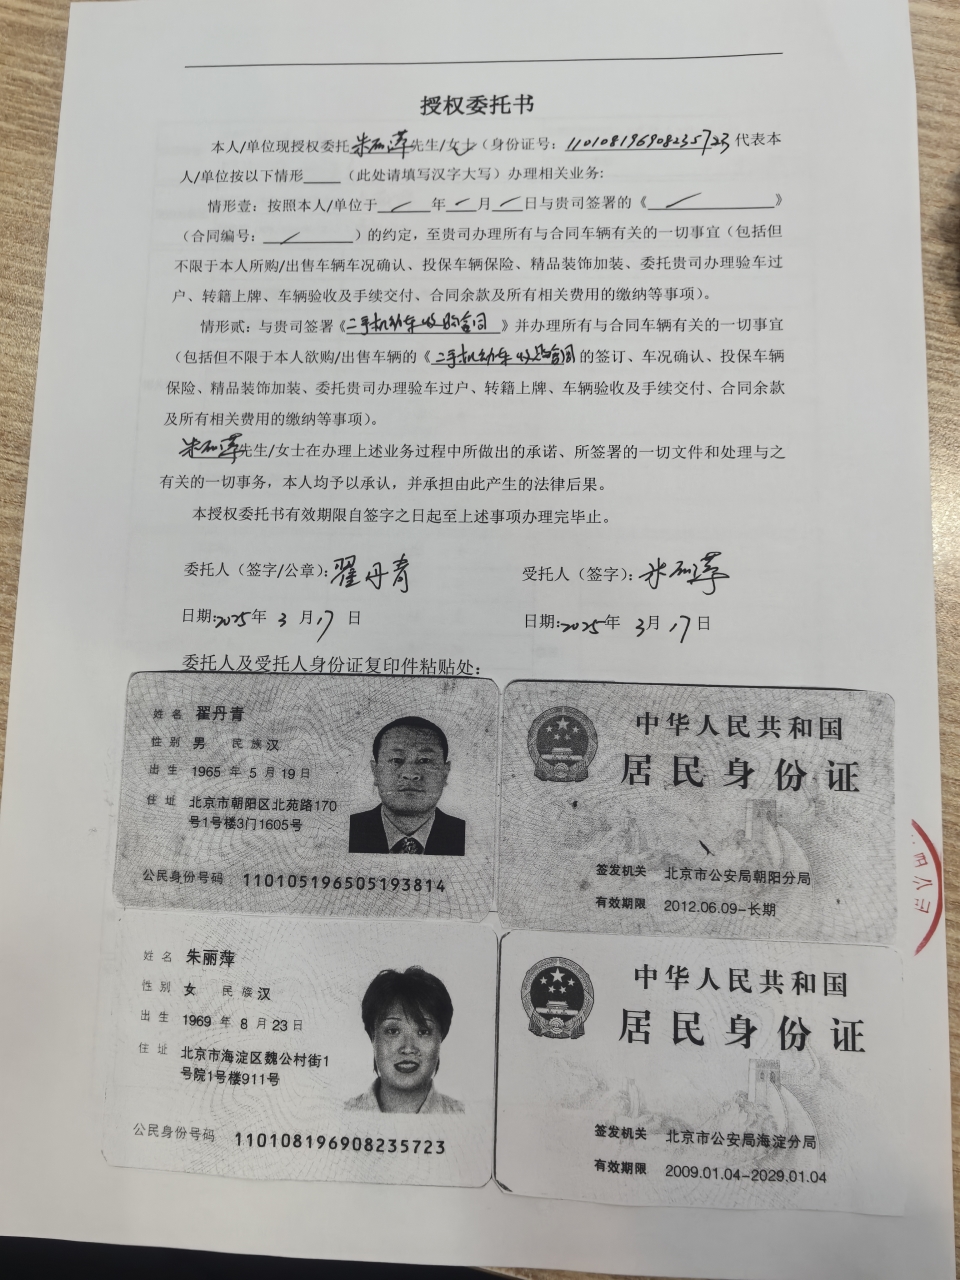 授权委托书
本人/单位现授权委托朱丽萍先生/女士（身份证号：110108196908235723 代表本
人/单位按以下情形____（此处请填写汉字大写）办理相关业务:
情形壹：按照本人/单位于 / 年 / 月 / 日与贵司签署的《 / 》
（合同编号： / ）的约定，至贵司办理所有与合同车辆有关的一切事宜（包括但
不限于本人所购/出售车辆车况确认、投保车辆保险、精品装饰加装、委托贵司办理验车过
户、转籍上牌、车辆验收及手续交付、合同余款及所有相关费用的缴纳等事项）。
情形贰：与贵司签署《二手机动车收购合同》并办理所有与合同车辆有关的一切事宜
（包括但不限于本人欲购/出售车辆的《二手机动车收购合同的签订、车况确认、投保车辆
保险、精品装饰加装、委托贵司办理验车过户、转籍上牌、车辆验收及手续交付、合同余款
及所有相关费用的缴纳等事项）。
朱丽萍先生/女士在办理上述业务过程中所做出的承诺、所签署的一切文件和处理与之
有关的一切事务，本人均予以承认，并承担由此产生的法律后果。
本授权委托书有效期限自签字之日起至上述事项办理完毕止。
委托人（签字/公章）：翟丹青
受托人（签字）：朱丽萍
日期:2025年 3 月17 日
日期:2025年 3月 17日
委托人及受托人身份证复印件粘贴处：
姓名 翟丹青
性别 男 民族 汉
出生 1965 年 5 月 19 日
住址 北京市朝阳区北苑路170
号1号楼3门1605号
公民身份号码 110105196505193814
中华人民共和国
居民身份证
签发机关 北京市公安局朝阳分局
有效期限 2012.06.09-长期
姓名 朱丽萍
性别 女 民族 汉
出生 1969 年 8 月 23 日
住址 北京市海淀区魏公村街1
号院1号楼911号
公民身份号码 110108196908235723
中华人民共和国
居民身份证
签发机关 北京市公安局海淀分局
有效期限 2009.01.04-2029.01.04